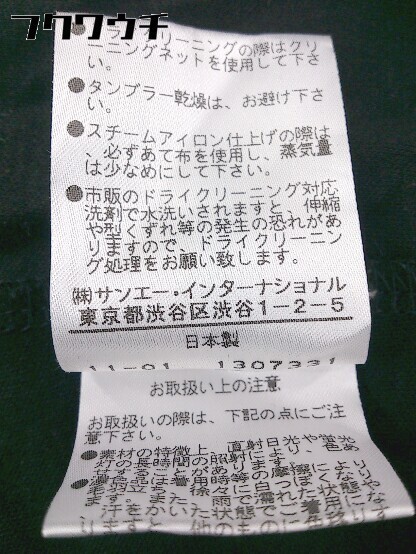 フクワウチ
ドライクリーニングの際はクリ
ーニングネットを使用して下さ
い。
●タンブラー乾燥は、お避け下さ
い。
●スチームアイロン仕上げの際は
、必ずあて布を使用し、蒸気量
は少なめにして下さい。
●市販のドライクリーニング対応
洗剤で水洗いされますと、伸縮
や型くずれ等の発生の恐れがあ
りますので、ドライクリーニン
グ処理をお願い致します。
㈱サンエー・インターナショナル
東京都渋谷区渋谷1-2-5
日本製
11-01 1307331
お取扱い上の注意
お取扱いの際は、下記の点にご注
意下さい。
●素材の特徴上、直射日光や蛍光